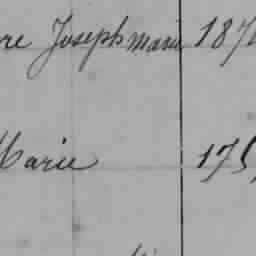 re Joseph marie 187
Marie 175